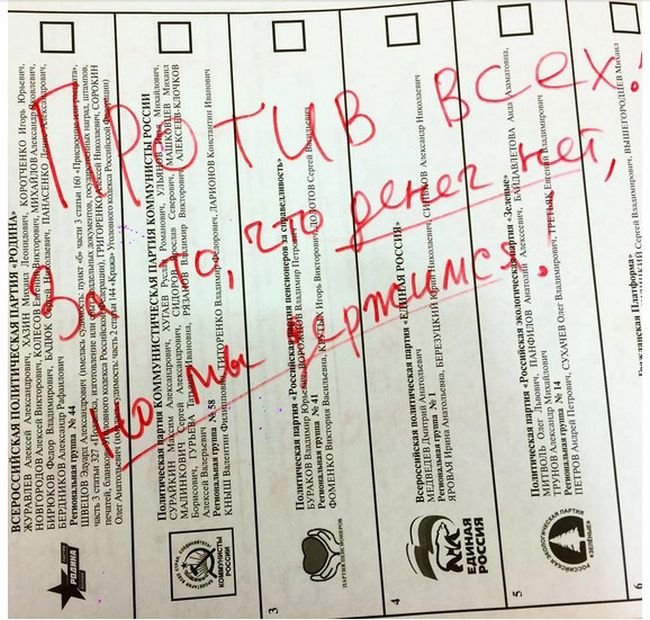 Против всех!
За то, что денег нет,
но мы держимся.
ВСЕРОССИЙСКАЯ ПОЛИТИЧЕСКАЯ ПАРТИЯ «РОДИНА»
ЖУРАВЛЕВ Алексей Александрович, ХАЗИН Михаил Леонидович, КОРОТЧЕНКО Игорь Юрьевич,
НОВГОРОДОВ Алексей Викторович, КОЛЕСОВ Евгений Викторович, МИХАЙЛОВ Александр Яковлевич,
БИРЮКОВ Федор Владимирович, БАДЮК Сергей Николаевич, ПАНАСЕНКО Денис Александрович,
БЕРДНИКОВ Александр Рафаилович
Региональная группа № 44
ШВЕЦОВ Эдуард Александрович (имелась судимость: пункт «б» части 3 статьи 160 «Присвоение или растрата»,
часть 3 статьи 327 «Подделка, изготовление или сбыт поддельных документов, государственных наград, штампов,
печатей, бланков» Уголовного кодекса Российской Федерации), ГРИГОРЕНКО Алексей Николаевич, СОРОКИН
Олег Анатольевич (имелась судимость: часть 2 статьи 144 «Кража» Уголовного кодекса Российской Федерации)
РОДИНА
Политическая партия КОММУНИСТИЧЕСКАЯ ПАРТИЯ КОММУНИСТЫ РОССИИ
СУРАЙКИН Максим Александрович, ХУГАЕВ Руслан Романович, УЛЬЯНОВ Михайлович,
МАЛИНКОВИЧ Сергей Александрович, СИДОРОВ Ярослав Северович, МАШКОВЦЕВ Михаил
Борисович, ГУРЬЕВА Татьяна Ивановна, РЯЗАНОВ Владимир Викторович, АЛЕКСЕЕВ-КЛОЧКОВ
Алексей Валерьевич
Региональная группа № 58
КНЫШ Валентин Филиппович, ТИТОРЕНКО Владимир Федорович, ЛАРИОНОВ Константин Иванович
ПРОЛЕТАРИИ ВСЕХ СТРАН, СОЕДИНЯЙТЕСЬ!
КОММУНИСТЫ
РОССИИ
3
Политическая партия «Российская партия пенсионеров за справедливость»
БУРАКОВ Владимир Юрьевич, ВОРОЖЦОВ Владимир Петрович
Региональная группа № 41
ФОМЕНКО Виктория Васильевна, КРУТЫХ Игорь Викторович, ДОЛОТОВ Сергей Васильевич
ПАРТИЯ ПЕНСИОНЕРОВ
4
Всероссийская политическая партия «ЕДИНАЯ РОССИЯ»
МЕДВЕДЕВ Дмитрий Анатольевич
Региональная группа № 1
ЯРОВАЯ Ирина Анатольевна, БЕРЕЗУЦКИЙ Юрий Николаевич, СИНЬКОВ Александр Николаевич
ЕДИНАЯ
РОССИЯ
5
Политическая партия «Российская экологическая партия «Зеленые»
МИТВОЛЬ Олег Львович, ПАНФИЛОВ Анатолий Алексеевич, БАЙДАВЛЕТОВА Аида Ахаматовна,
ТРУНОВ Александр Михайлович
Региональная группа № 14
ПЕТРОВ Андрей Петрович, СУХАЧЕВ Олег Владимирович, ТРЕТЬЯК Евгений Владимирович
РОССИЙСКАЯ ЭКОЛОГИЧЕСКАЯ ПАРТИЯ
«ЗЕЛЁНЫЕ»
6
Гражданская Платформа»
Сергей Владимирович, ВЫШЕГОРОДЦЕВ Михаил